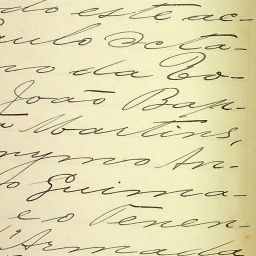 do este ac-
aulo Octa-
no da Ro-
João Bap-
a Martins,
nymo An-
o Guima-
e o Tenen-
Armada